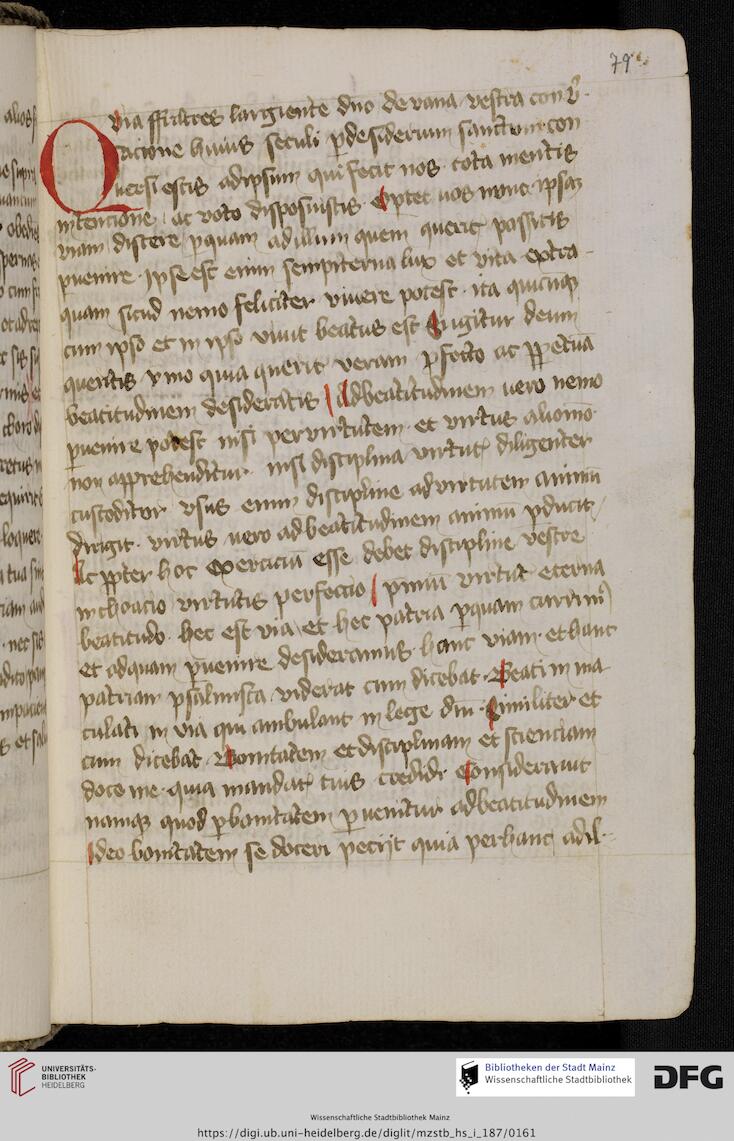 79
Quia ffratres largiente dno de vana vestra con v̉
sacione huius seculi p desiderium sanctum con
uersi estis ad ipsum qui fecit nos tota mentis
intencione ac voto disposuistis Optet uos nunc ipsaz
viam discere p quam ad illum quem queritis possitis
puenire ipse est enim sempiterna lux et vita extra
quam sicud nemo feliciter viuere potest ita quicūqz
cum ipso et in ipso viuit beatus est Igitur deum
queritis ymo quia queritis veram pfecto ac ppetuā
beatitudinem desideratis Ad beatitudinem uero nemo
puenire potest nisi per virtutem et virtus alio mō
non apprehenditur nisi disciplina virtut diligenter
custoditor vsus enim discipline ad virtutem animū
dirigit virtus uero ad beatitudinem animū pducit
Ac ppter hoc exerciciū esse debet discipline vestre
inchoacio virtutis perfeccio pmiū virtut eterna
beatitudo hec est via et hec patria p quam currim9
et ad quam puenire desideramus hanc viam et hanc
patriam psalmista viderat cum dicebat Beati in ma
culati in via qui ambulant in lege dni Similiter et
cum dicebat Bonitatem et disciplinam et scienciam
doce me quia mandat tuis credidi Considerauit
namqz quod p bonitatem peruenitur ad beatitudinem
Ideo bonitatem se doceri pecijt quia per hanc ad il
UNIVERSITÄTS-
BIBLIOTHEK
HEIDELBERG
Bibliotheken der Stadt Mainz
Wissenschaftliche Stadtbibliothek
DFG
Wissenschaftliche Stadtbibliothek Mainz
https://digi.ub.uni-heidelberg.de/diglit/mzstb_hs_i_187/0161